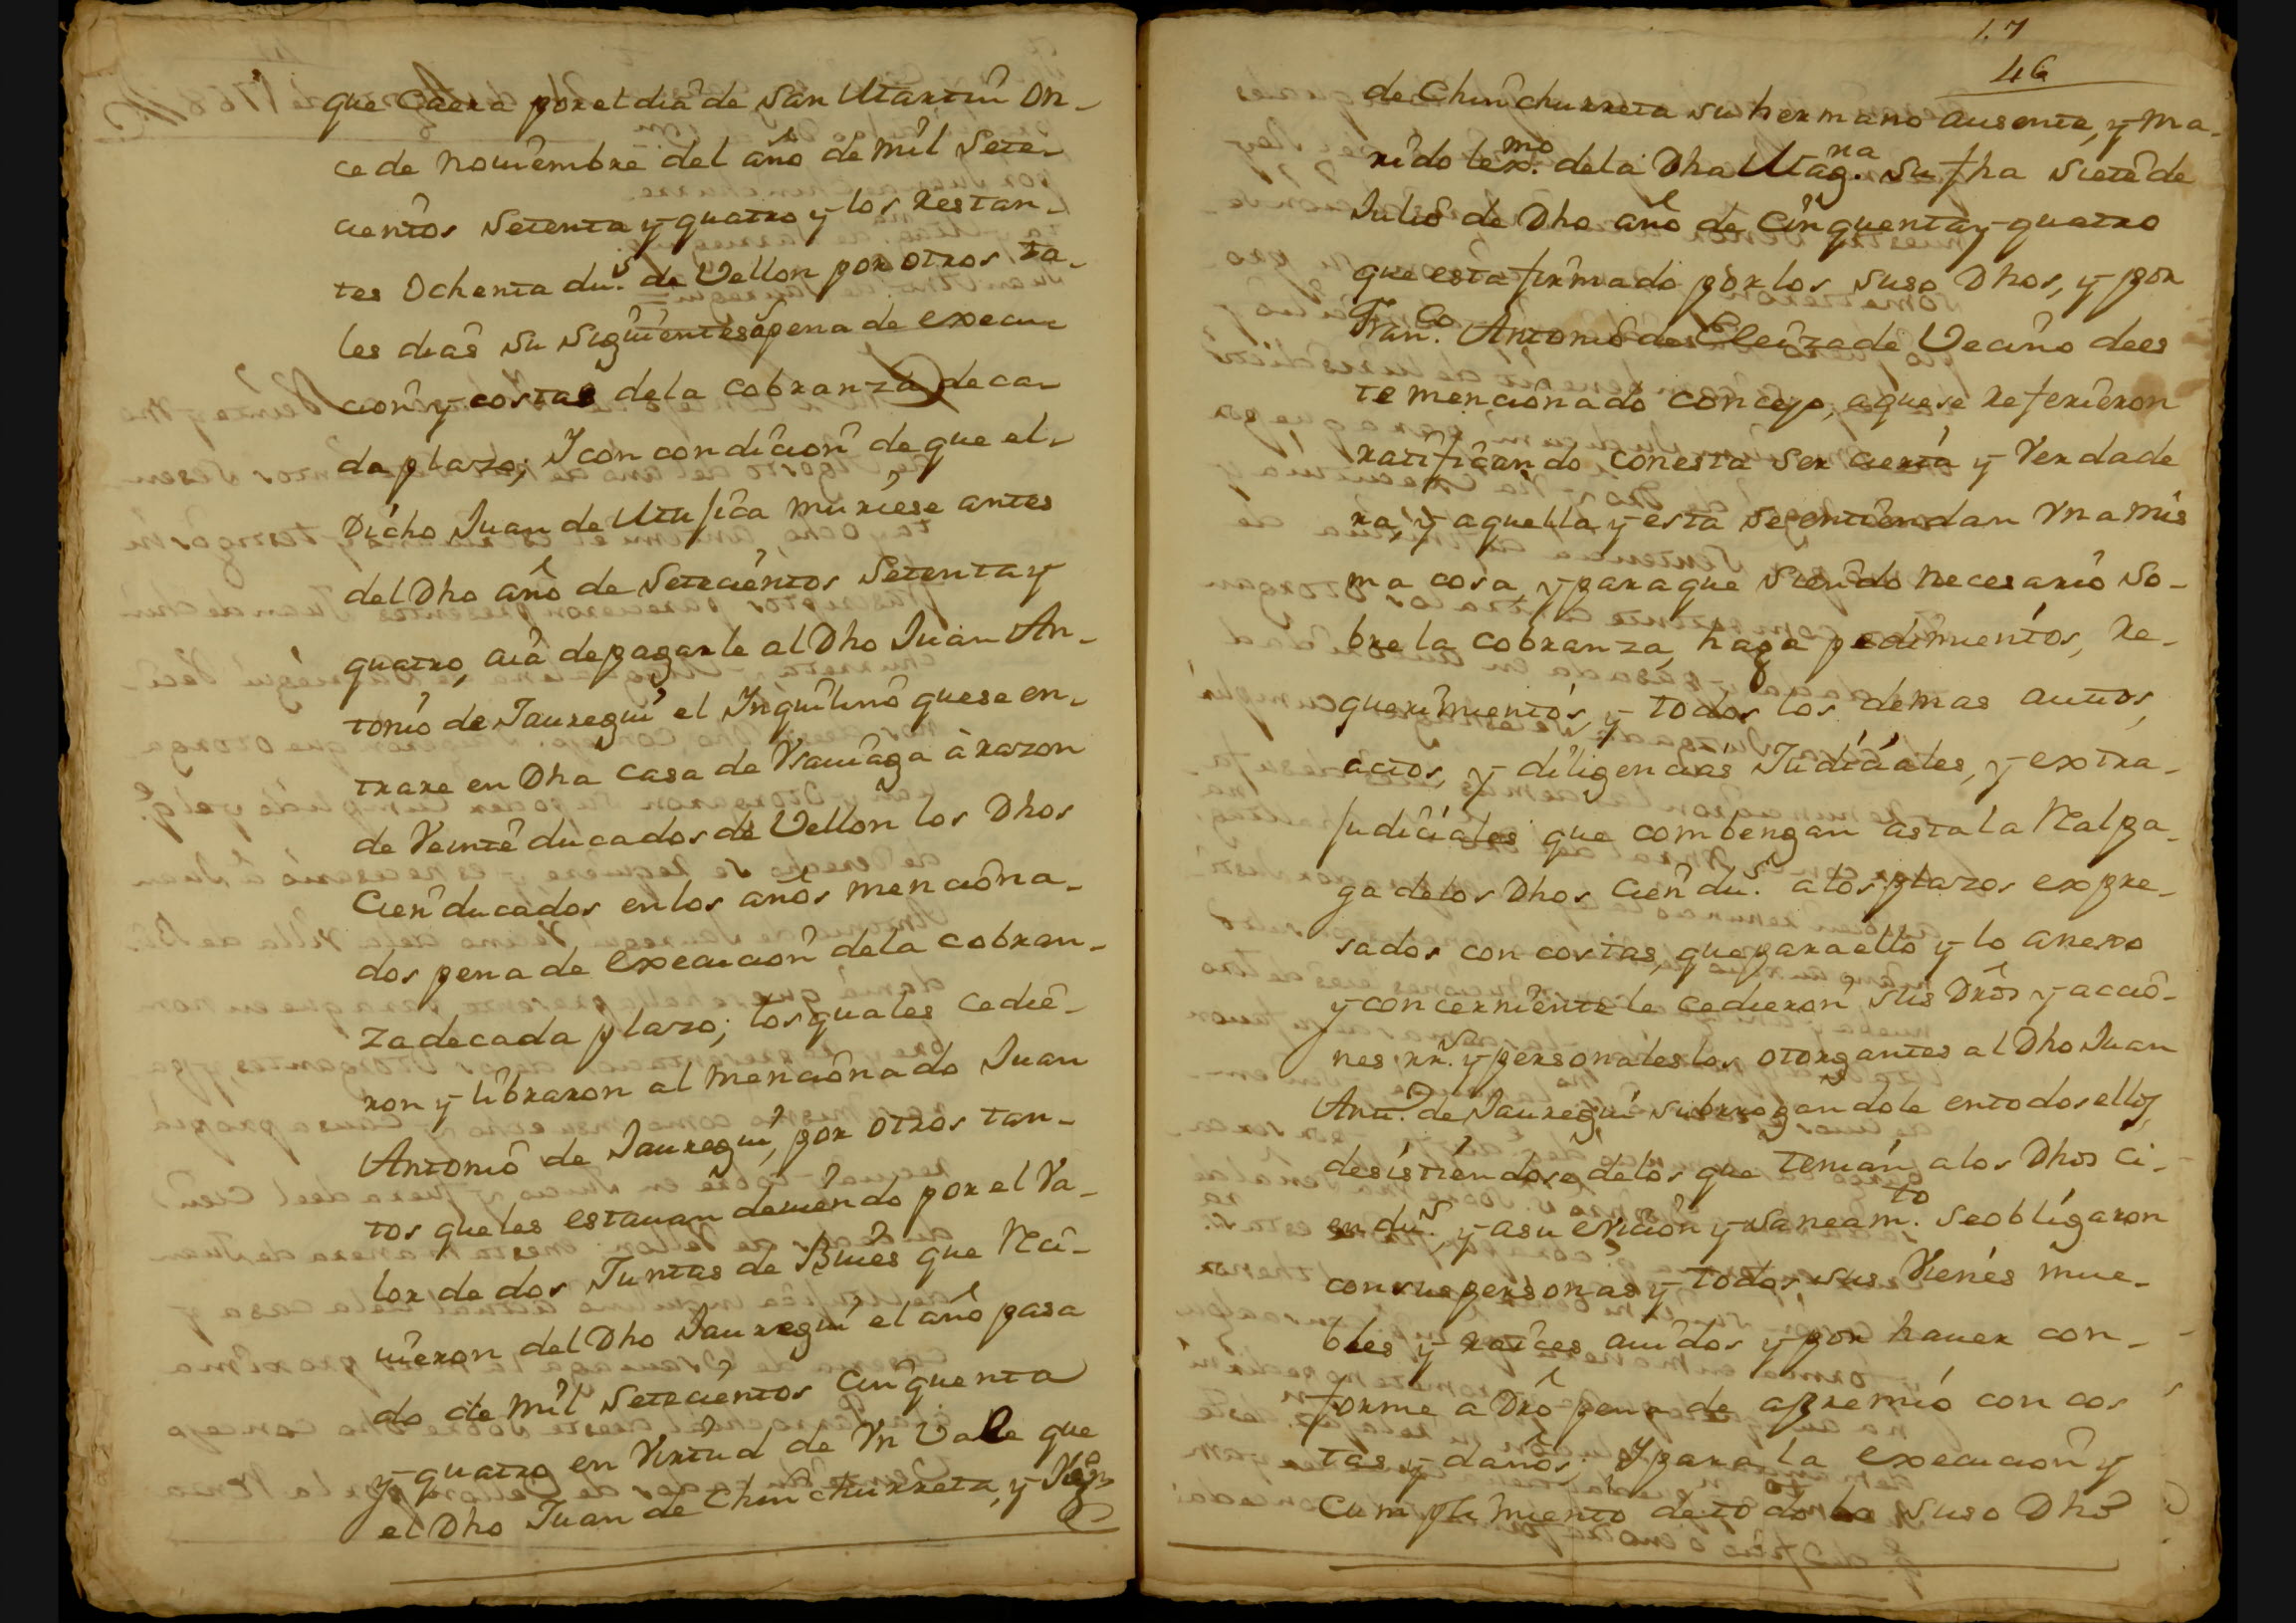 que Caera por el dia de San Martin On-
ce de nouiembre del año de mil Sete-
cientos Setenta y quatro y los Restan-
tes Ochenta du.s de Vellon por otros ta-
les dias Su Siguientes pena de execu-
cion y costas de la cobranza de ca-
da plazo; Y con condicion de que el-
Dicho Juan de Mufica muriese antes
del Dho año de Setecientos Setenta y
quatro, aia de pagarle al Dho Juan An-
tonio de Jauregui el Ynquilino que se en-
trare en Dha Casa de Vsauiaga à razon
de Veinte ducados de Vellon los Dhos
Cien ducados en los años menciona-
dos pena de execucion de la cobran-
za de cada plazo; los quales Cedie-
ron y libraron al mencionado Juan
Antonio de Jauregui, por otros tan-
tos que les estauan deuiendo por el Va-
lor de dos Juntas de Bueies que Reci-
uieron del Dho Jauregui el año pasa
do de mil Setecientos Cinquenta
y quatro en Virtud de Vn Vale que
el Dho Juan de Chinchurreta, y
17
46
de Chinchurreta su hermano ausente, y ma-
rido lexmo. de la Dha Magna. Su fha Siete de
Julio de Dho año de Cinquenta y quatro
que esta firmado por los Suso Dhos, y por
Franco. Antonio de Eleizade Vecino de es
te mencionado concejo, a que se Refirieron
ratificando con esta Ser cierta y Verdade
ra, y aquella y esta Se entiendan Vna mis
ma cosa, y para que Siendo necesario So-
bre la cobranza, haga pedimientos, Re-
querimientos, y todos los demas autos,
actos, y diligencias Judiciales, y extra-
Judiciales que combengan asta la Real pa-
ga de los Dhos Cien du.s a los plazos expre-
sados con costas, que para ello y lo anexo
y concerniente le cedieron sus Dros y accio-
nes rr.s y personales los otorgantes al Dho Juan
Antt.o de Jauregui subrrogandole en todos ellos,
desistiendose de los que tenian a los Dhos ci-
en du.s, y a su euiccion y saneamto. Se obligaron
con sus personas y todos sus Vienes mue-
bles y raices auidos y por hauer con-
forme a Dro pena de apremio con cos
tas y daños; Y para la execucion y
Cumplimiento de todo lo Suso Dho